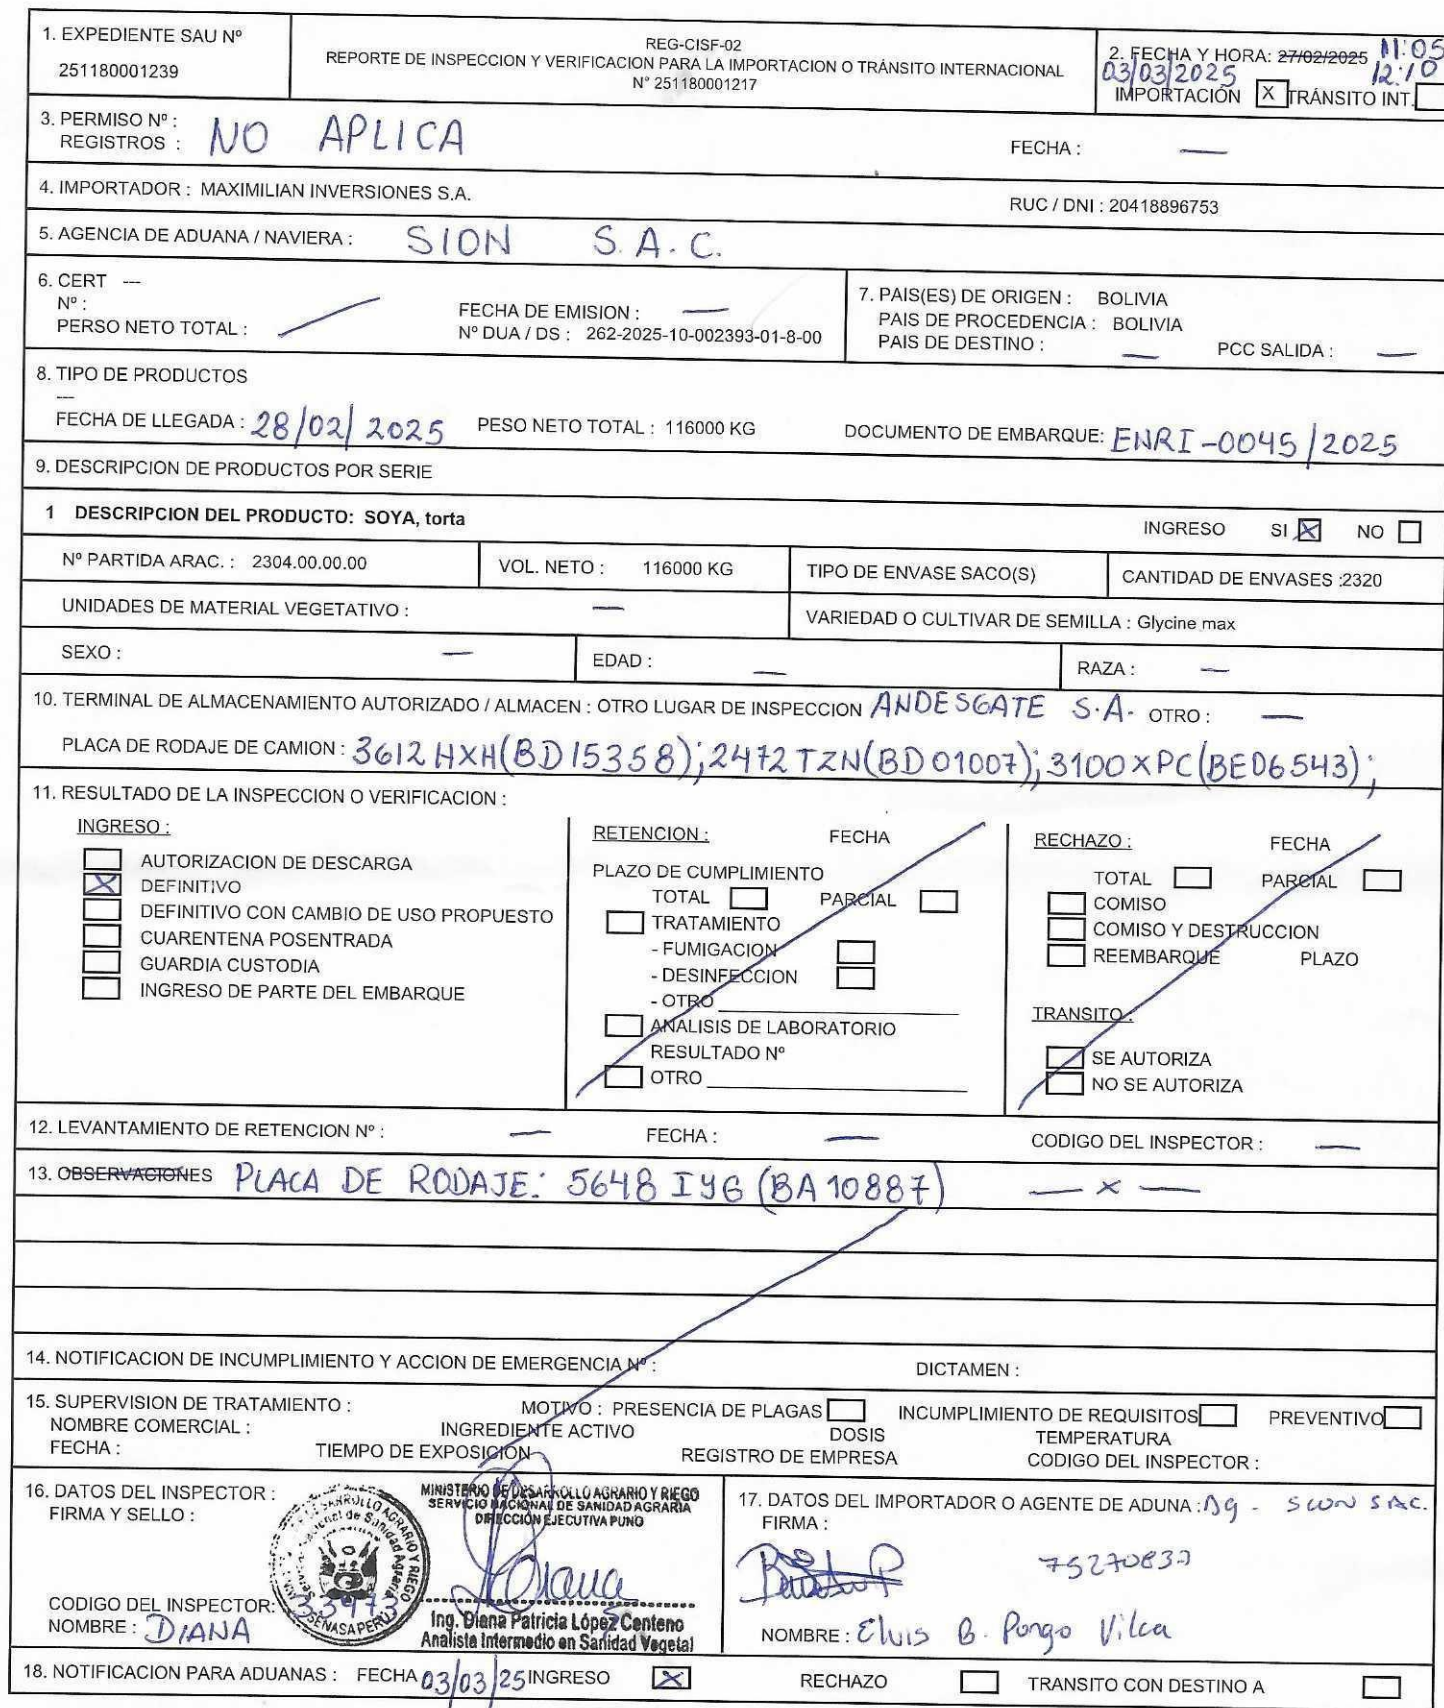 1. EXPEDIENTE SAU Nº
251180001239
REG-CISF-02
REPORTE DE INSPECCION Y VERIFICACION PARA LA IMPORTACION O TRÁNSITO INTERNACIONAL
N° 251180001217
2. FECHA Y HORA: 27/02/2025 11:05
03/03/2025 12:10
IMPORTACIÓN X TRÁNSITO INT.
3. PERMISO Nº :
REGISTROS : NO APLICA FECHA : —
4. IMPORTADOR : MAXIMILIAN INVERSIONES S.A. RUC / DNI : 20418896753
5. AGENCIA DE ADUANA / NAVIERA : SION S.A.C.
6. CERT ---
Nº : FECHA DE EMISION : —
PERSO NETO TOTAL : Nº DUA / DS : 262-2025-10-002393-01-8-00
7. PAIS(ES) DE ORIGEN : BOLIVIA
PAIS DE PROCEDENCIA : BOLIVIA
PAIS DE DESTINO : — PCC SALIDA : —
8. TIPO DE PRODUCTOS
---
FECHA DE LLEGADA : 28/02/2025 PESO NETO TOTAL : 116000 KG DOCUMENTO DE EMBARQUE: ENRI-0045/2025
9. DESCRIPCION DE PRODUCTOS POR SERIE
1 DESCRIPCION DEL PRODUCTO: SOYA, torta INGRESO SI X NO
Nº PARTIDA ARAC. : 2304.00.00.00 VOL. NETO : 116000 KG TIPO DE ENVASE SACO(S) CANTIDAD DE ENVASES :2320
UNIDADES DE MATERIAL VEGETATIVO : — VARIEDAD O CULTIVAR DE SEMILLA : Glycine max
SEXO : — EDAD : — RAZA : —
10. TERMINAL DE ALMACENAMIENTO AUTORIZADO / ALMACEN : OTRO LUGAR DE INSPECCION ANDESGATE S.A. OTRO : —
PLACA DE RODAJE DE CAMION : 3612 HXH(BD15358); 2472 TZN(BD01007); 3100XPC(BED6543);
11. RESULTADO DE LA INSPECCION O VERIFICACION :
INGRESO :
AUTORIZACION DE DESCARGA
X DEFINITIVO
DEFINITIVO CON CAMBIO DE USO PROPUESTO
CUARENTENA POSENTRADA
GUARDIA CUSTODIA
INGRESO DE PARTE DEL EMBARQUE
RETENCION : FECHA
PLAZO DE CUMPLIMIENTO
TOTAL PARCIAL
TRATAMIENTO
- FUMIGACION
- DESINFECCION
- OTRO
ANALISIS DE LABORATORIO
RESULTADO Nº
OTRO
RECHAZO : FECHA
TOTAL PARCIAL
COMISO
COMISO Y DESTRUCCION
REEMBARQUE PLAZO
TRANSITO :
SE AUTORIZA
NO SE AUTORIZA
12. LEVANTAMIENTO DE RETENCION Nº : — FECHA : — CODIGO DEL INSPECTOR : —
13. OBSERVACIONES PLACA DE RODAJE: 5648 IYG (BA10887) — x —
14. NOTIFICACION DE INCUMPLIMIENTO Y ACCION DE EMERGENCIA Nº : DICTAMEN :
15. SUPERVISION DE TRATAMIENTO : MOTIVO : PRESENCIA DE PLAGAS INCUMPLIMIENTO DE REQUISITOS PREVENTIVO
NOMBRE COMERCIAL : INGREDIENTE ACTIVO DOSIS TEMPERATURA
FECHA : TIEMPO DE EXPOSICIÓN REGISTRO DE EMPRESA CODIGO DEL INSPECTOR :
16. DATOS DEL INSPECTOR :
FIRMA Y SELLO :
MINISTERIO DE DESARROLLO AGRARIO Y RIEGO
SERVICIO NACIONAL DE SANIDAD AGRARIA
DIRECCIÓN EJECUTIVA PUNO
SENASA PERÚ
Diana
Ing. Diana Patricia López Centeno
Analista Intermedio en Sanidad Vegetal
CODIGO DEL INSPECTOR: 33973
NOMBRE : DIANA
17. DATOS DEL IMPORTADOR O AGENTE DE ADUNA : Ag. SION SAC.
FIRMA :
NOMBRE : Elvis B. Pongo Vilca
18. NOTIFICACION PARA ADUANAS : FECHA 03/03/25 INGRESO X RECHAZO TRANSITO CON DESTINO A